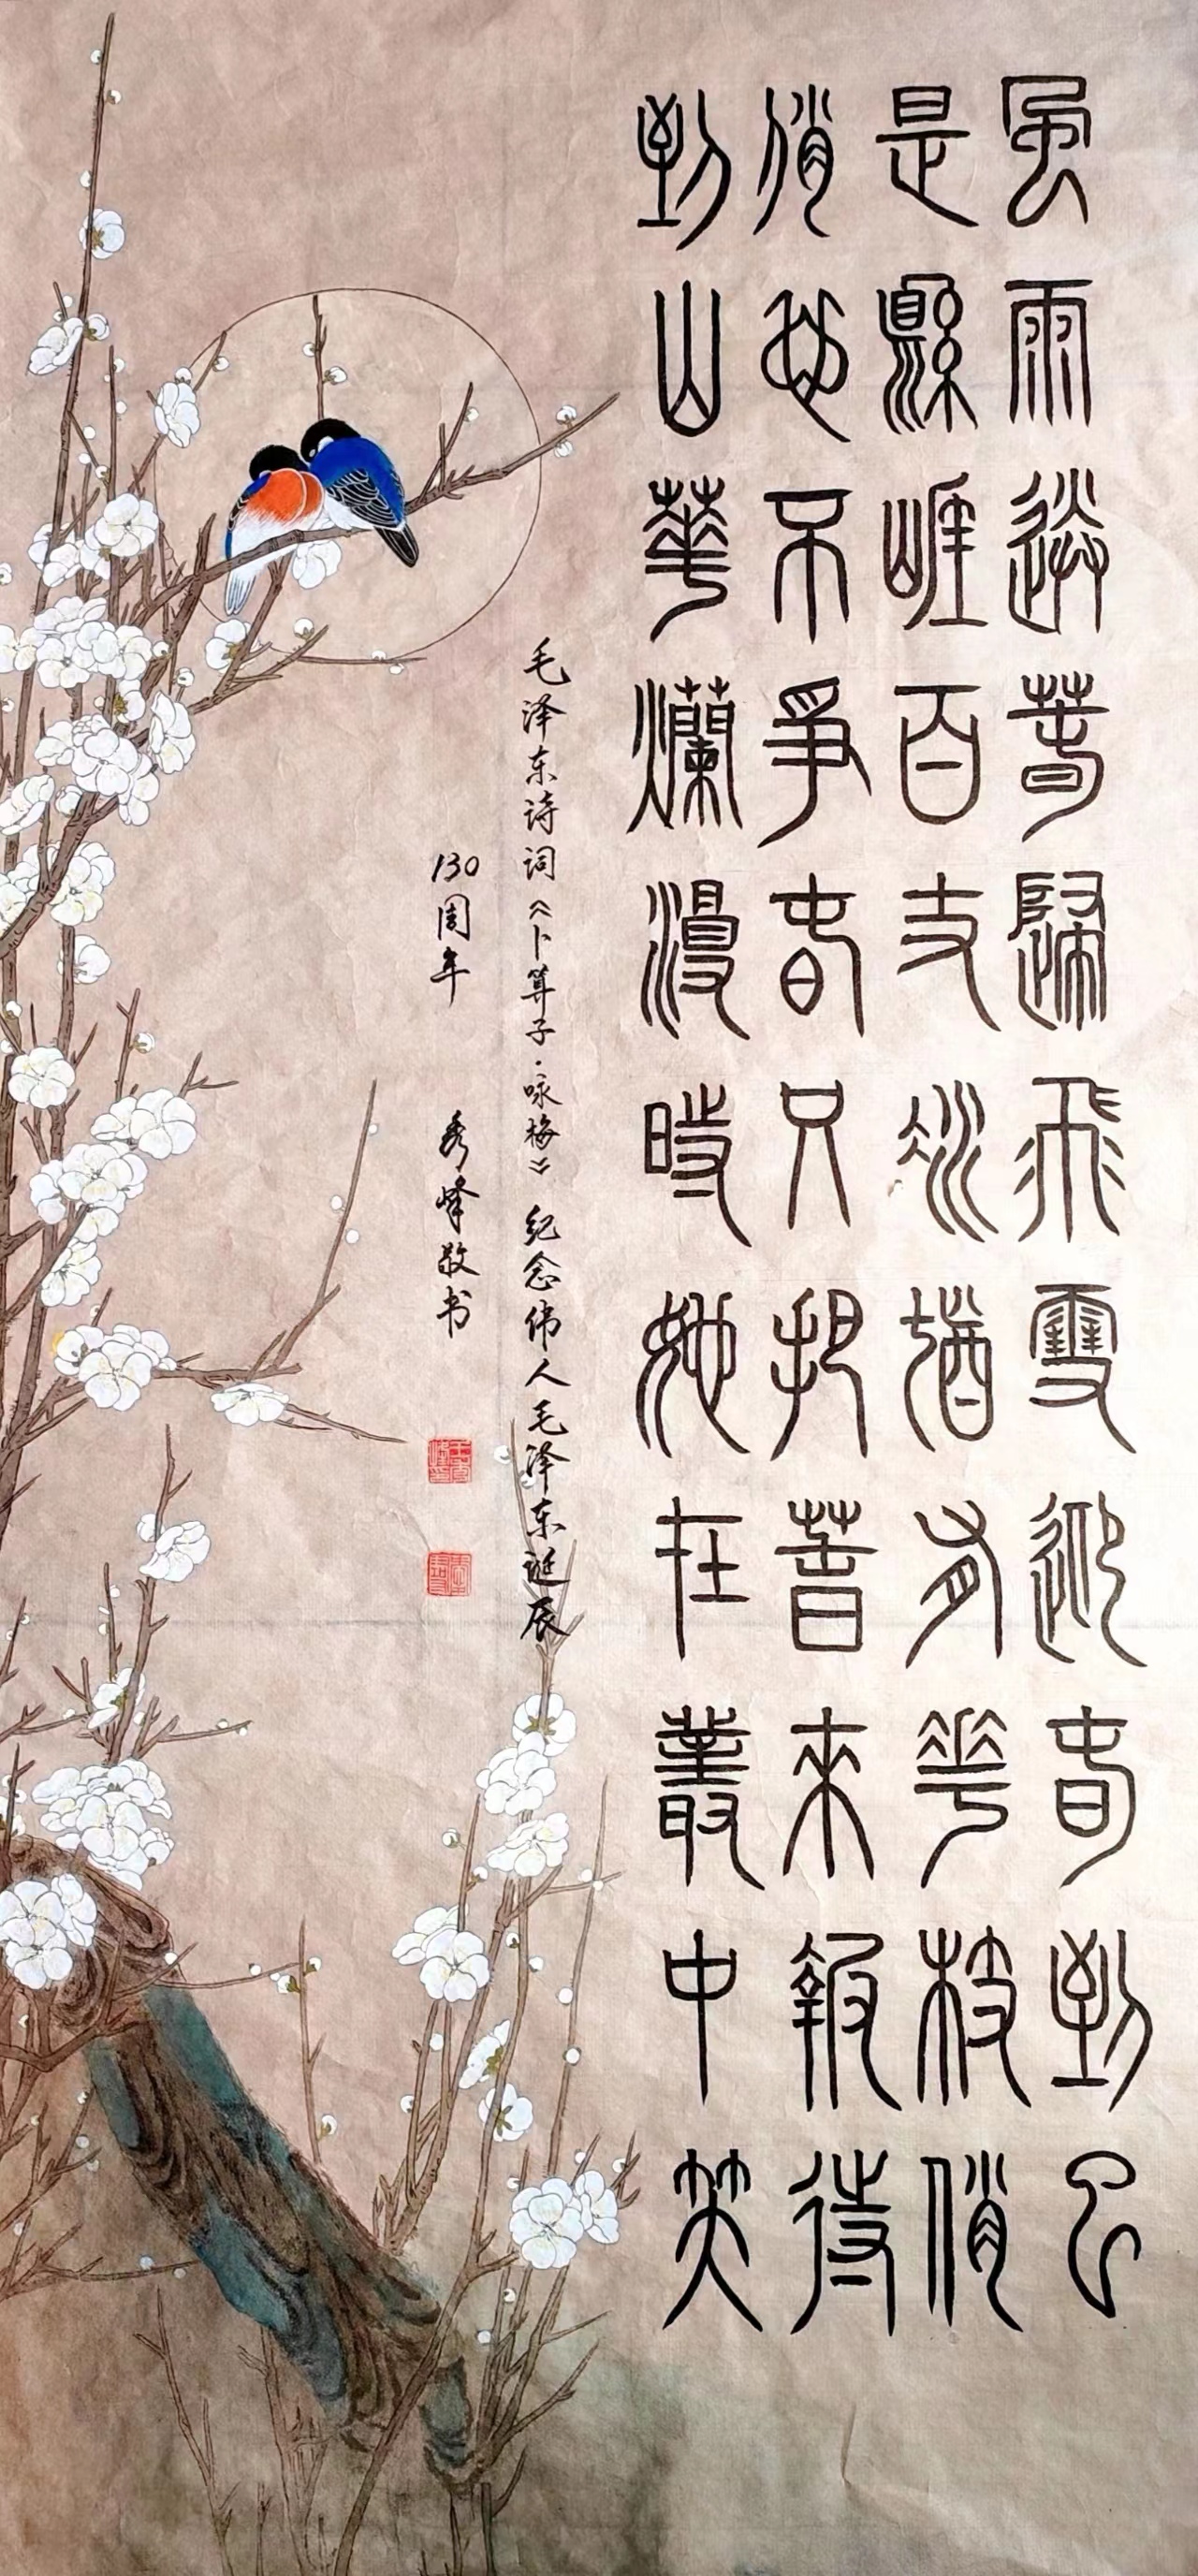 風雨送春歸飛雪迎春到已
是縣崖百丈冰猶有花枝俏
俏也不爭春只把春來報待
到山華爛漫時她在叢中笑
毛泽东诗词《卜算子·咏梅》纪念伟人毛泽东诞辰
130周年 秀峰敬书